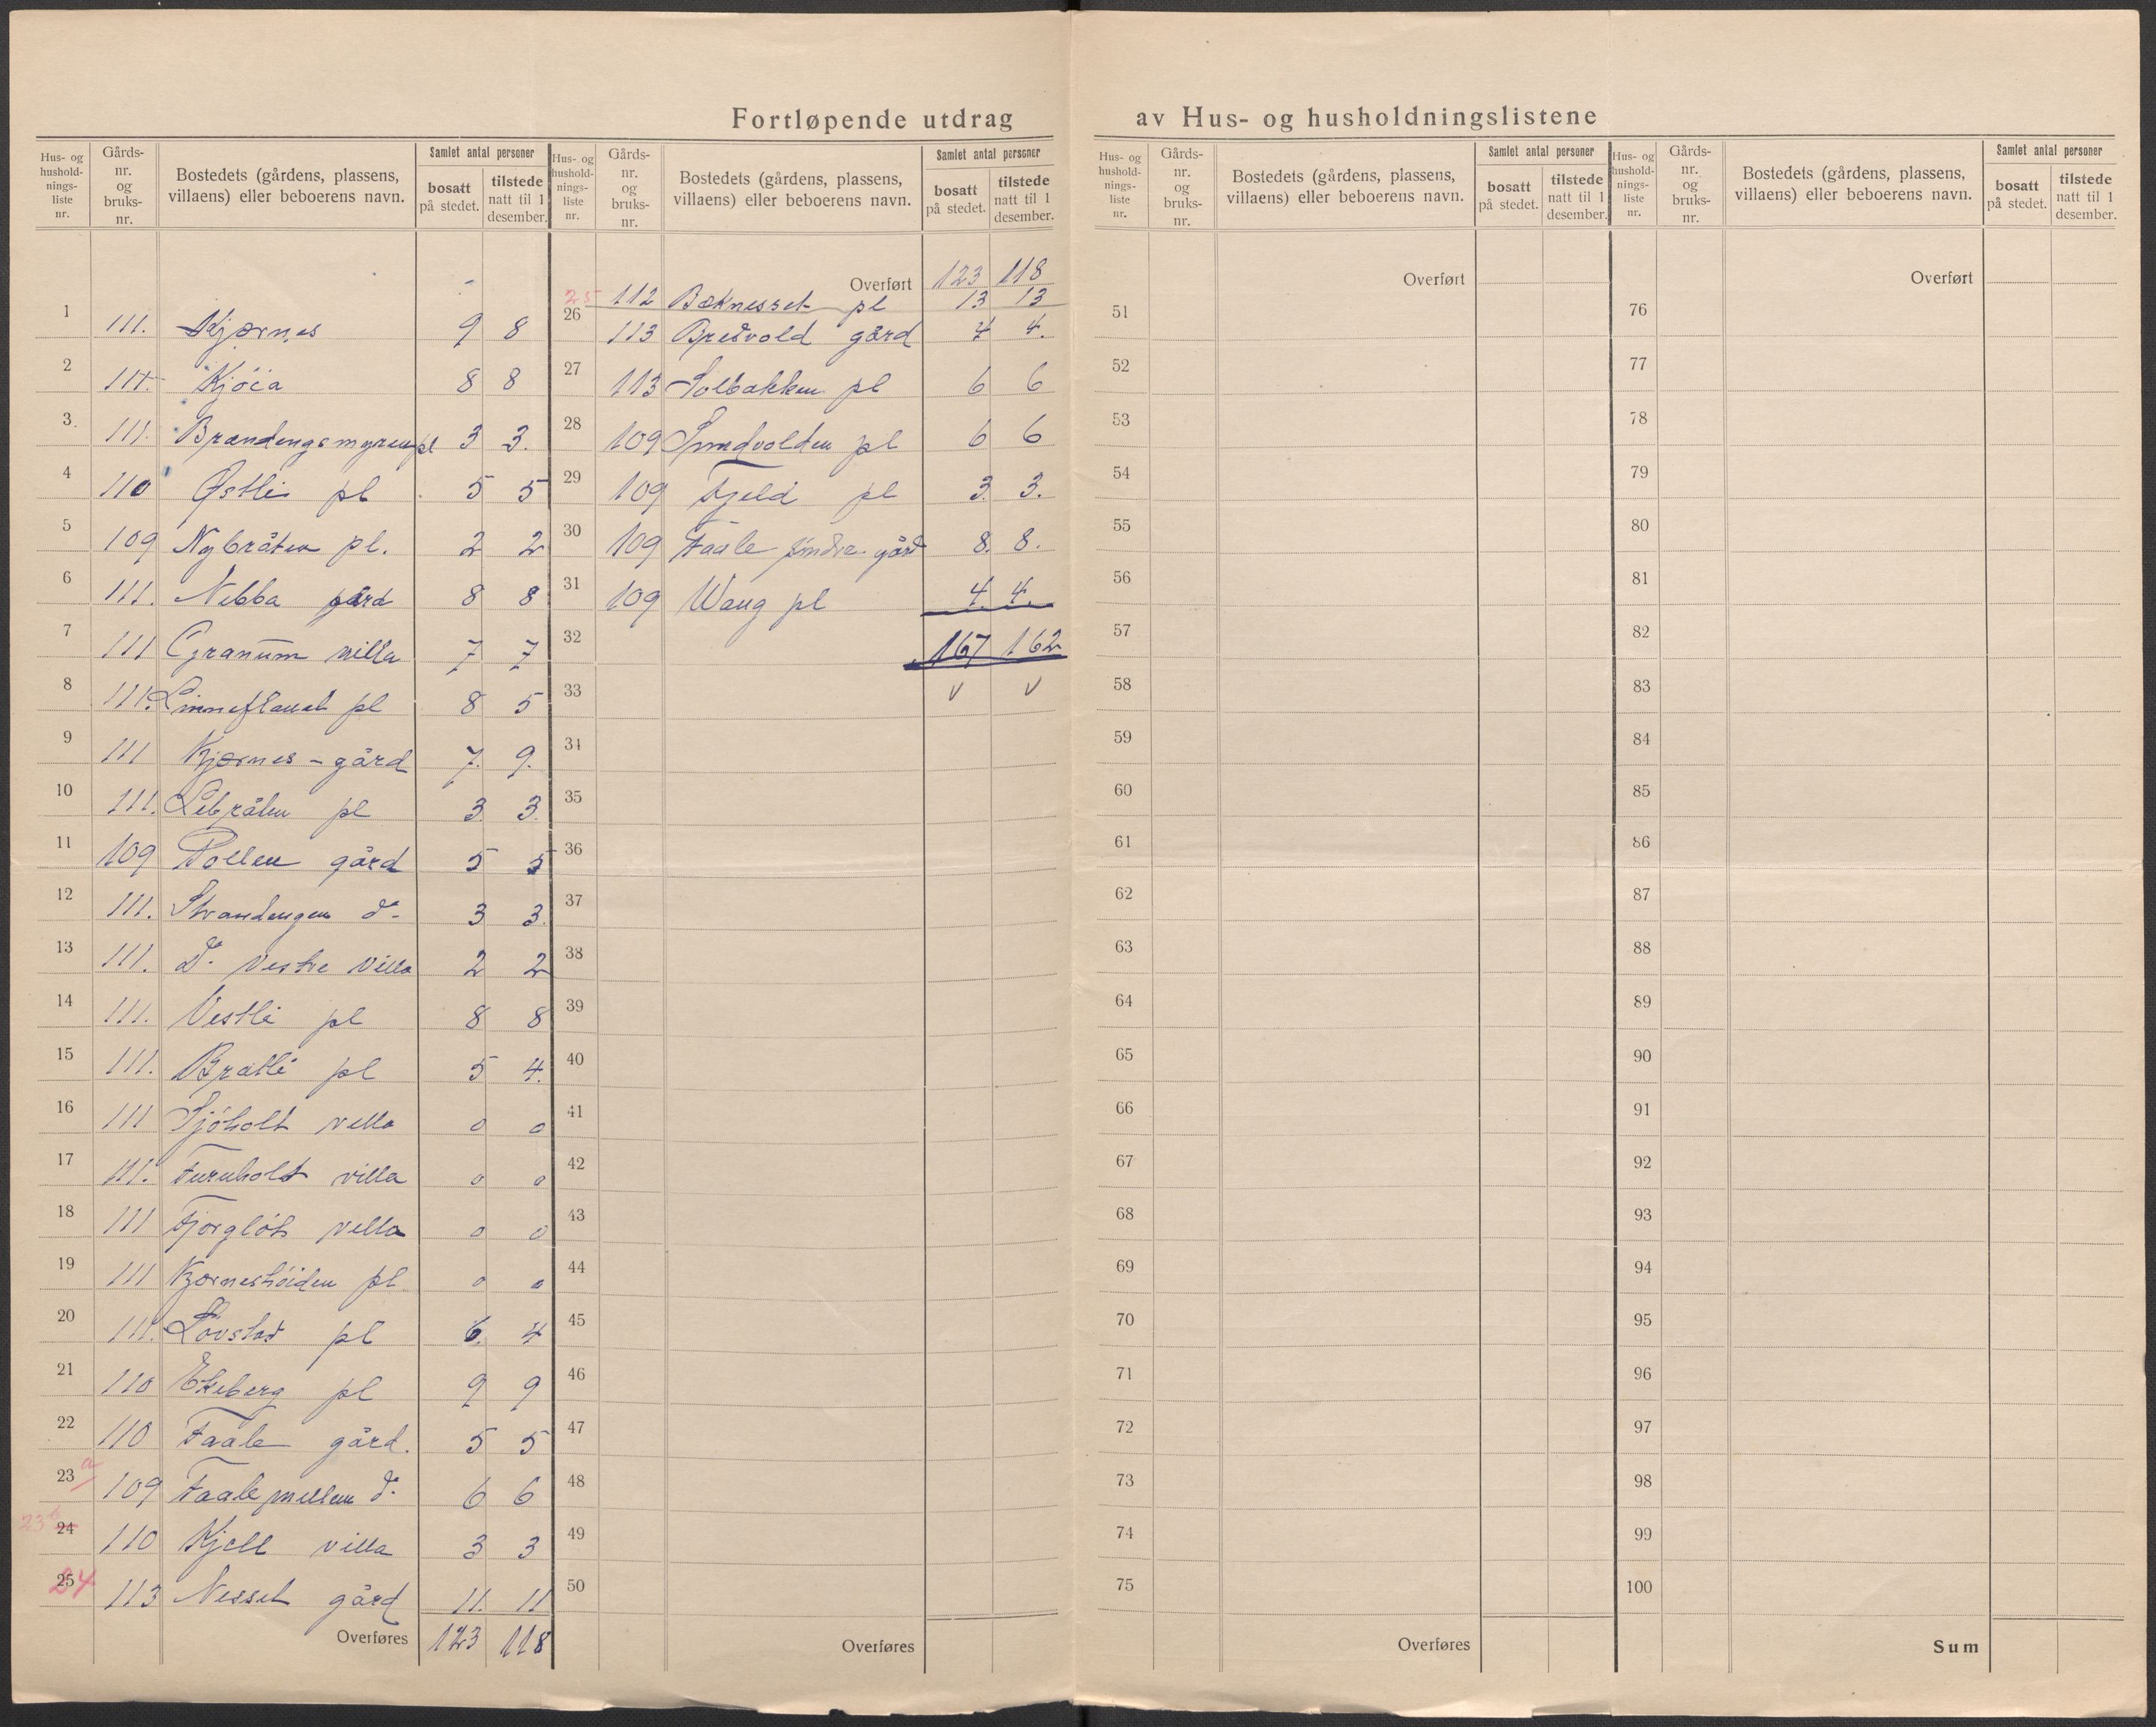 Fortløpende utdrag av Hus- og husholdningslistene
Hus- og hushold- nings- liste nr.
Gårds- nr. og bruks- nr.
Bostedets (gårdens, plassens, villaens) eller beboerens navn.
Samlet antal personer
bosatt på stedet.
tilstede natt til 1 desember.
1 111. Kjærnes 9 8
2 111. Kjöia 8 8
3. 111. Brandengsmyren pl 3 3.
4 110 Østli pl. 5 5
5 109 Nybråten pl. 2 2
6 111. Nebba gård 8 8
7 111 Granum villa 7 7
8 111. Linneflauet pl 8 5
9 111 Kjærnes - gård 7. 9.
10 111. Lebråten pl 3. 3.
11 109 Pollen gård 5 5
12 111. Strandengen do 3 3.
13 111. Do vestre villa 2 2
14 111. Vestli pl 8 8
15 111. Bratli pl 5 4.
16 111 Sjöholt villa 0 0
17 111. Furuholt villa 0 0
18 111 Fjorglöt villa 0 0
19 111 Kjærneshöiden pl. 0 0
20 111. Lövstad pl 6. 4
21 110 Ekeberg pl 9 9
22 110 Faale gård. 5 5
23 a 109 Faale mellem do 6 6
23b 24 110 Kjell villa 3 3
25 24 113 Nesset gård 11. 11
Overføres 123 118
Hus- og hushold- nings- liste nr.
Gårds- nr. og bruks- nr.
Bostedets (gårdens, plassens, villaens) eller beboerens navn.
Samlet antal personer
bosatt på stedet.
tilstede natt til 1 desember.
Overført 123 118
25 112 Bæknesset pl 13 13
26 113 Bredvold gård 4 4.
27 113 Solbakken pl 6 6
28 109 Sundvolden pl 6 6
29 109 Fjeld pl 3. 3.
30 109 Faale söndre gård 8. 8.
31 109 Wang pl 4. 4.
32 167 162
33 v v
34
35
36
37
38
39
40
41
42
43
44
45
46
47
48
49
50
Overføres
Hus- og hushold- nings- liste nr.
Gårds- nr. og bruks- nr.
Bostedets (gårdens, plassens, villaens) eller beboerens navn.
Samlet antal personer
bosatt på stedet.
tilstede natt til 1 desember.
Overført
51
52
53
54
55
56
57
58
59
60
61
62
63
64
65
66
67
68
69
70
71
72
73
74
75
Overføres
Hus- og hushold- nings- liste nr.
Gårds- nr. og bruks- nr.
Bostedets (gårdens, plassens, villaens) eller beboerens navn.
Samlet antal personer
bosatt på stedet.
tilstede natt til 1 desember.
Overført
76
77
78
79
80
81
82
83
84
85
86
87
88
89
90
91
92
93
94
95
96
97
98
99
100
Sum